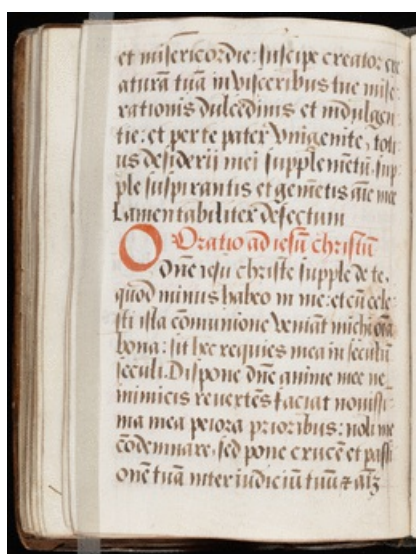 et misericordie: suscipe creator cre
aturā tuā in visceribus tue mise
rationis dulcedinis et indulgen
tie: et per te pater vnigenite, toti
us desiderii mei supplemētū, sup
ple suspirantis et gemētis aīe mee
Lamentabiliter defectum
Oratio ad iesū christū
O Dn̄e iesu christe supple de te,
quod minus habeo in me: et cū cele
sti ista cōmunione veniāt michi oīa
bona: sit hec requies mea in seculū
seculi. Dispone dn̄e anime mee ne
inimicis revertēs faciat novissi
ma mea peiora prioribus: noli me
cōdemnare, sed pone crucē et passi
onē tuā inter iudiciū tuū et aīā